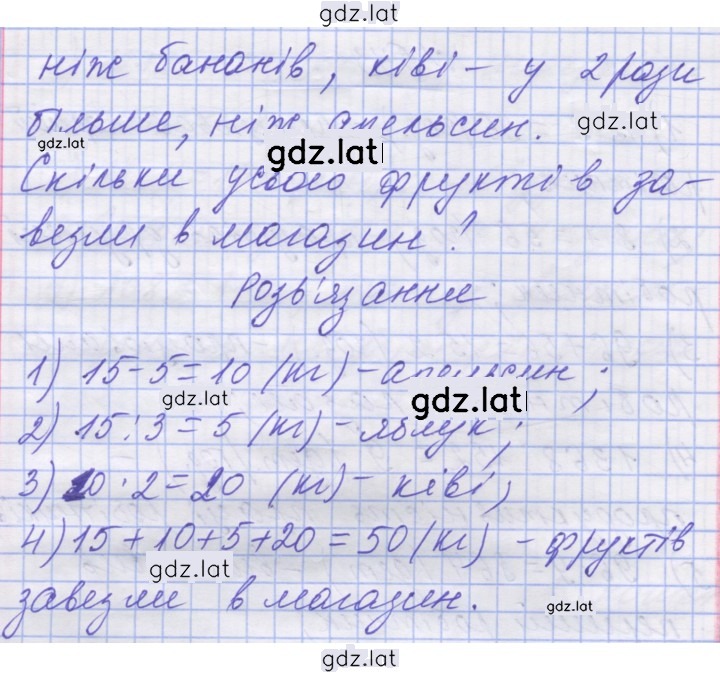 gdz.lat
ніж бананів, ківі - у 2 рази
більше, ніж апельсин.
gdz.lat
gdz.lat
gdz.lat
Скільки усього фруктів за-
везли в магазин?
Розв'язання
1) 15-5=10 (кг) - апельсин;
gdz.lat
gdz.lat
2) 15:3=5 (кг) - яблук;
3) 10·2=20 (кг) - ківі;
4) 15+10+5+20=50 (кг) - фруктів
gdz.lat
завезли в магазин.
gdz.lat
gdz.lat